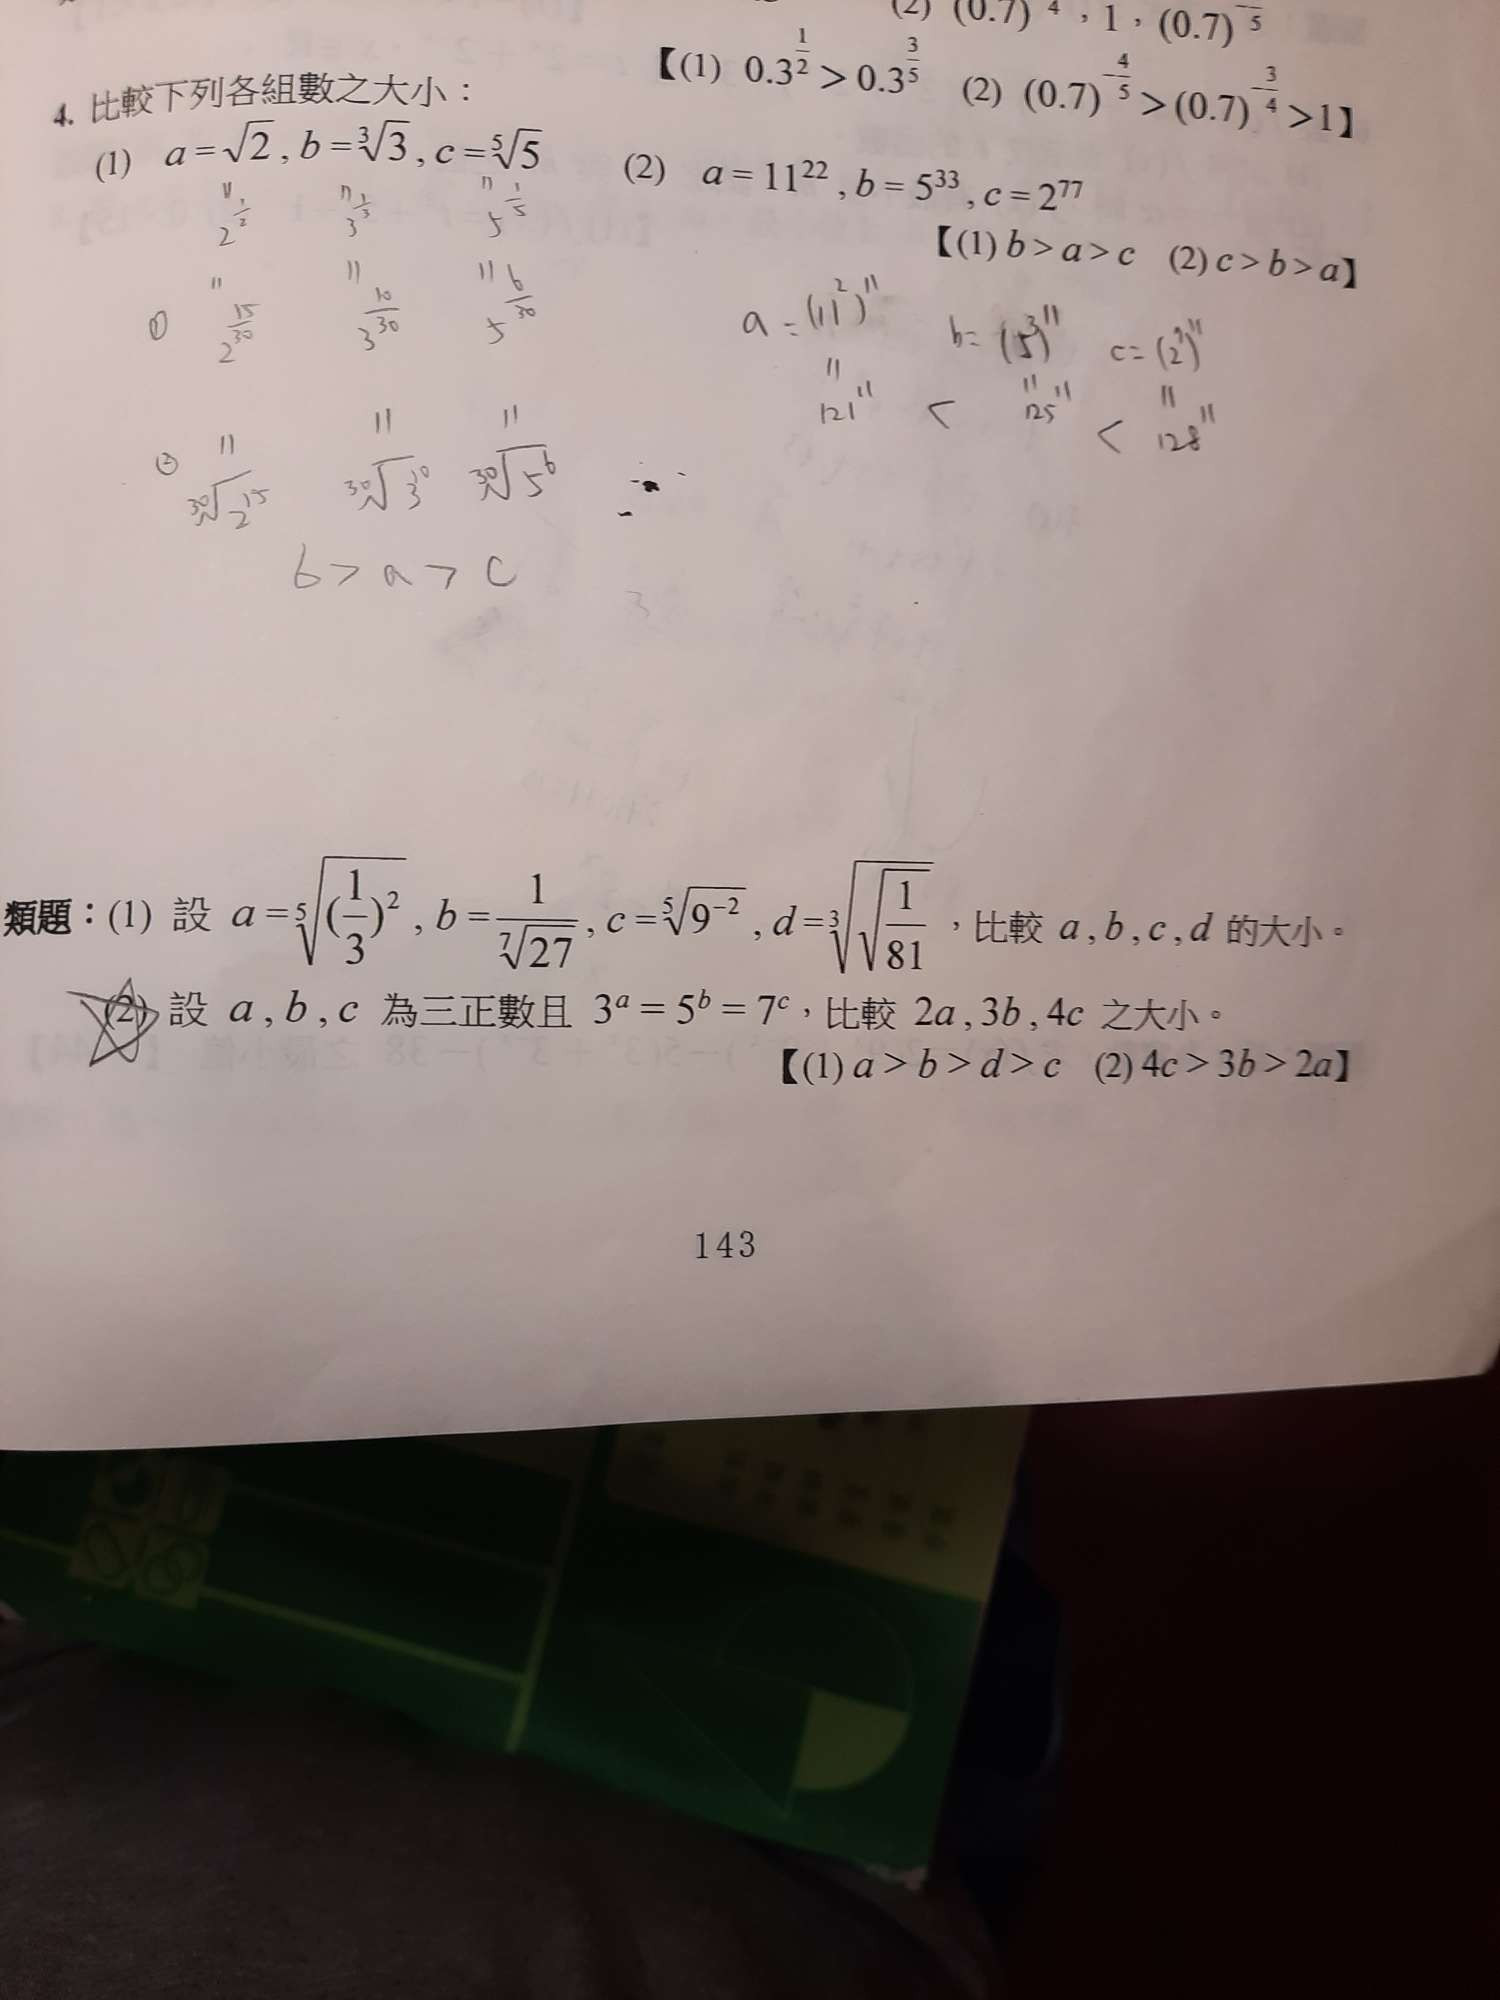 (2) (0.7)⁻³⁄⁴，1，(0.7)⁻⁴⁄⁵
【(1) 0.3^{1/2} > 0.3^{3/5} (2) (0.7)^{-4/5} > (0.7)^{-3/4} > 1】
4. 比較下列各組數之大小：
(1) a = √2 , b = ³√3 , c = ⁵√5 (2) a = 11²² , b = 5³³ , c = 2⁷⁷
【(1) b > a > c (2) c > b > a】
2^{1/2} 3^{1/3} 5^{1/5}
① 2^{15/30} 3^{10/30} 5^{6/30}
a = (11²)¹¹ b = (5³)¹¹ c = (2⁷)¹¹
121¹¹ < 125¹¹ < 128¹¹
② ³⁰√2¹⁵ ³⁰√3¹⁰ ³⁰√5⁶
b > a > c
類題：(1) 設 a = ⁵√(1/3)² , b = 1/⁷√27 , c = ⁵√9⁻² , d = ³√√(1/81)，比較 a , b , c , d 的大小。
(2) 設 a , b , c 為三正數且 3ᵃ = 5ᵇ = 7ᶜ，比較 2a , 3b , 4c 之大小。
【(1) a > b > d > c (2) 4c > 3b > 2a】
143